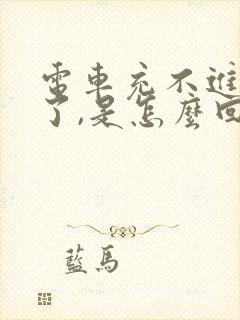 電車充不進
了,是怎麼回
藍馬